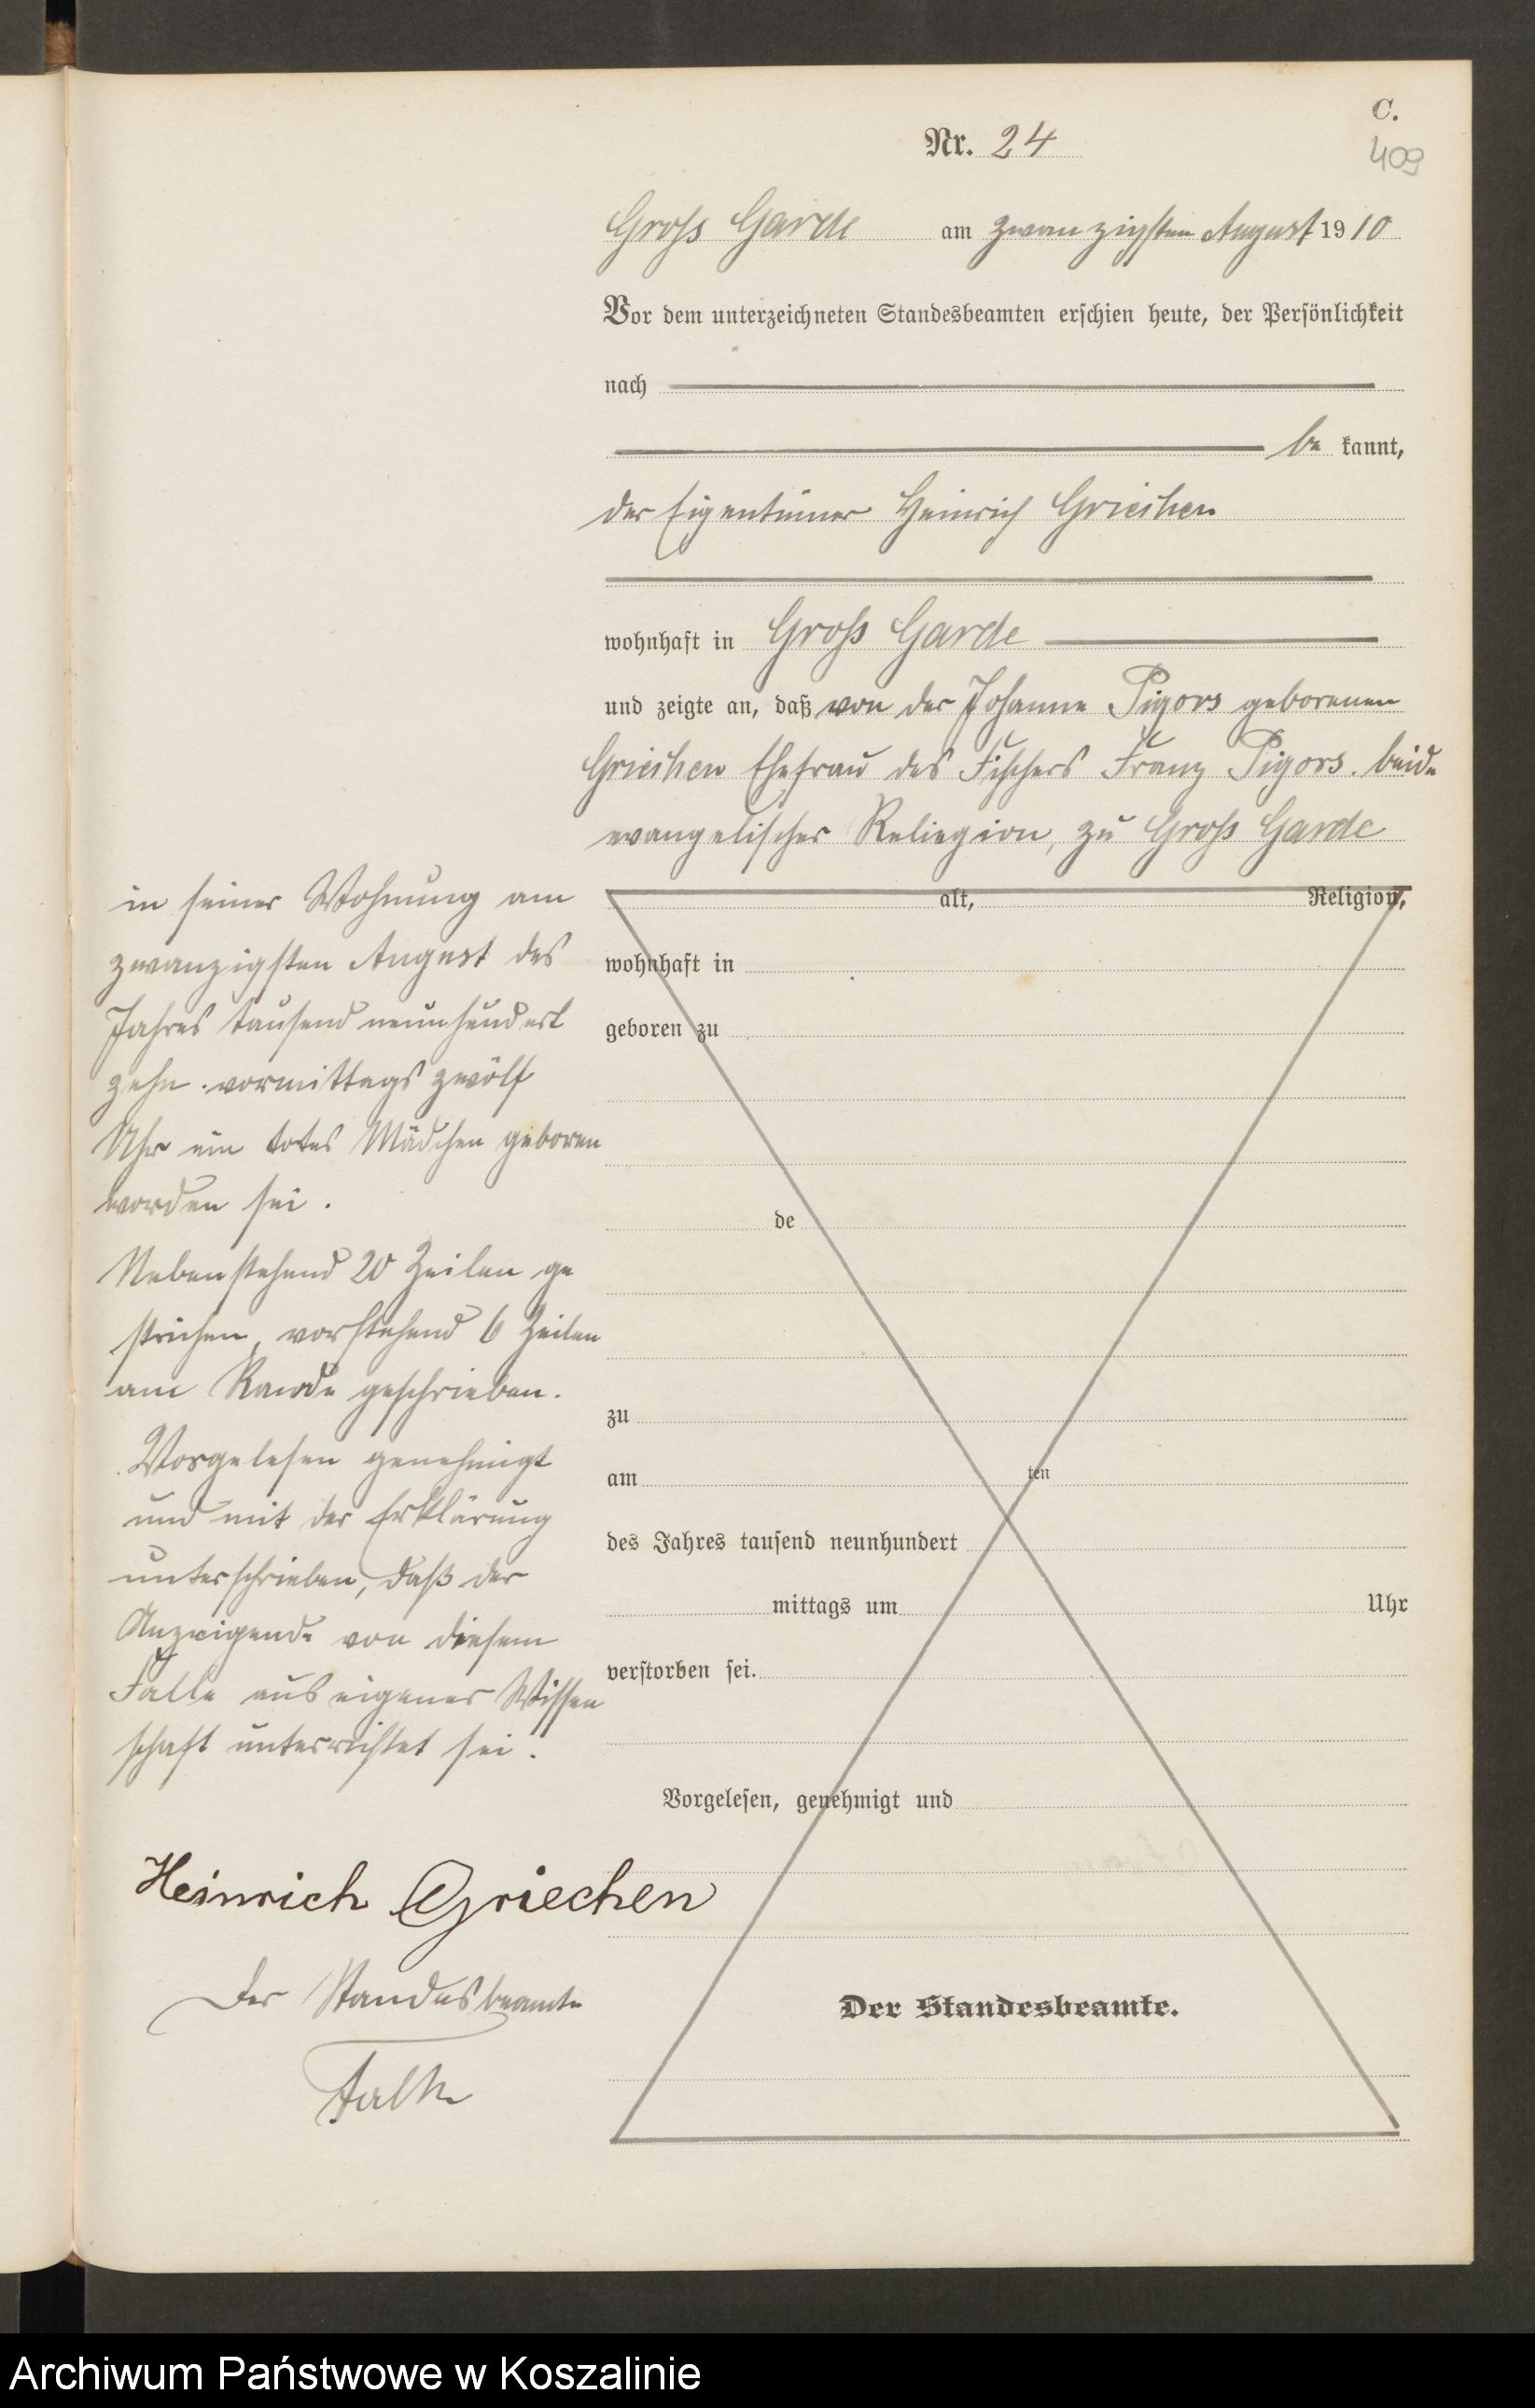 C.
409
Nr. 24
Gross Garde am zwanzigsten August 1910
Vor dem unterzeichneten Standesbeamten erschien heute, der Persönlichkeit
nach
be kannt,
der Eigentümer Heinrich Griechen
wohnhaft in Gross Garde
und zeigte an, daß von der Johanne Pigors geborenen
Griechen Ehefrau des Fischers Franz Pigors. beide
evangelischer Reliegion, zu Gross Garde
in seiner Wohnung am
zwanzigsten August des
Jahres tausend neunhundert
zehn vormittags zwölf
Uhr ein totes Mädchen geboren
worden sei.
Nebenstehend 20 Zeilen ge
strichen, vorstehend 6 Zeilen
am Rande geschrieben.
Vorgelesen genehmigt
und mit der Erklärung
unterschrieben, daß der
Anzeigende von diesem
Falle aus eigener Wissen
schaft unterrichtet sei.
Heinrich Griechen
Der Standesbeamte
Falk
alt, Religion,
wohnhaft in
geboren zu
de
zu
am ten
des Jahres tausend neunhundert
mittags um Uhr
verstorben sei.
Vorgelesen, genehmigt und
Der Standesbeamte.
Archiwum Państwowe w Koszalinie